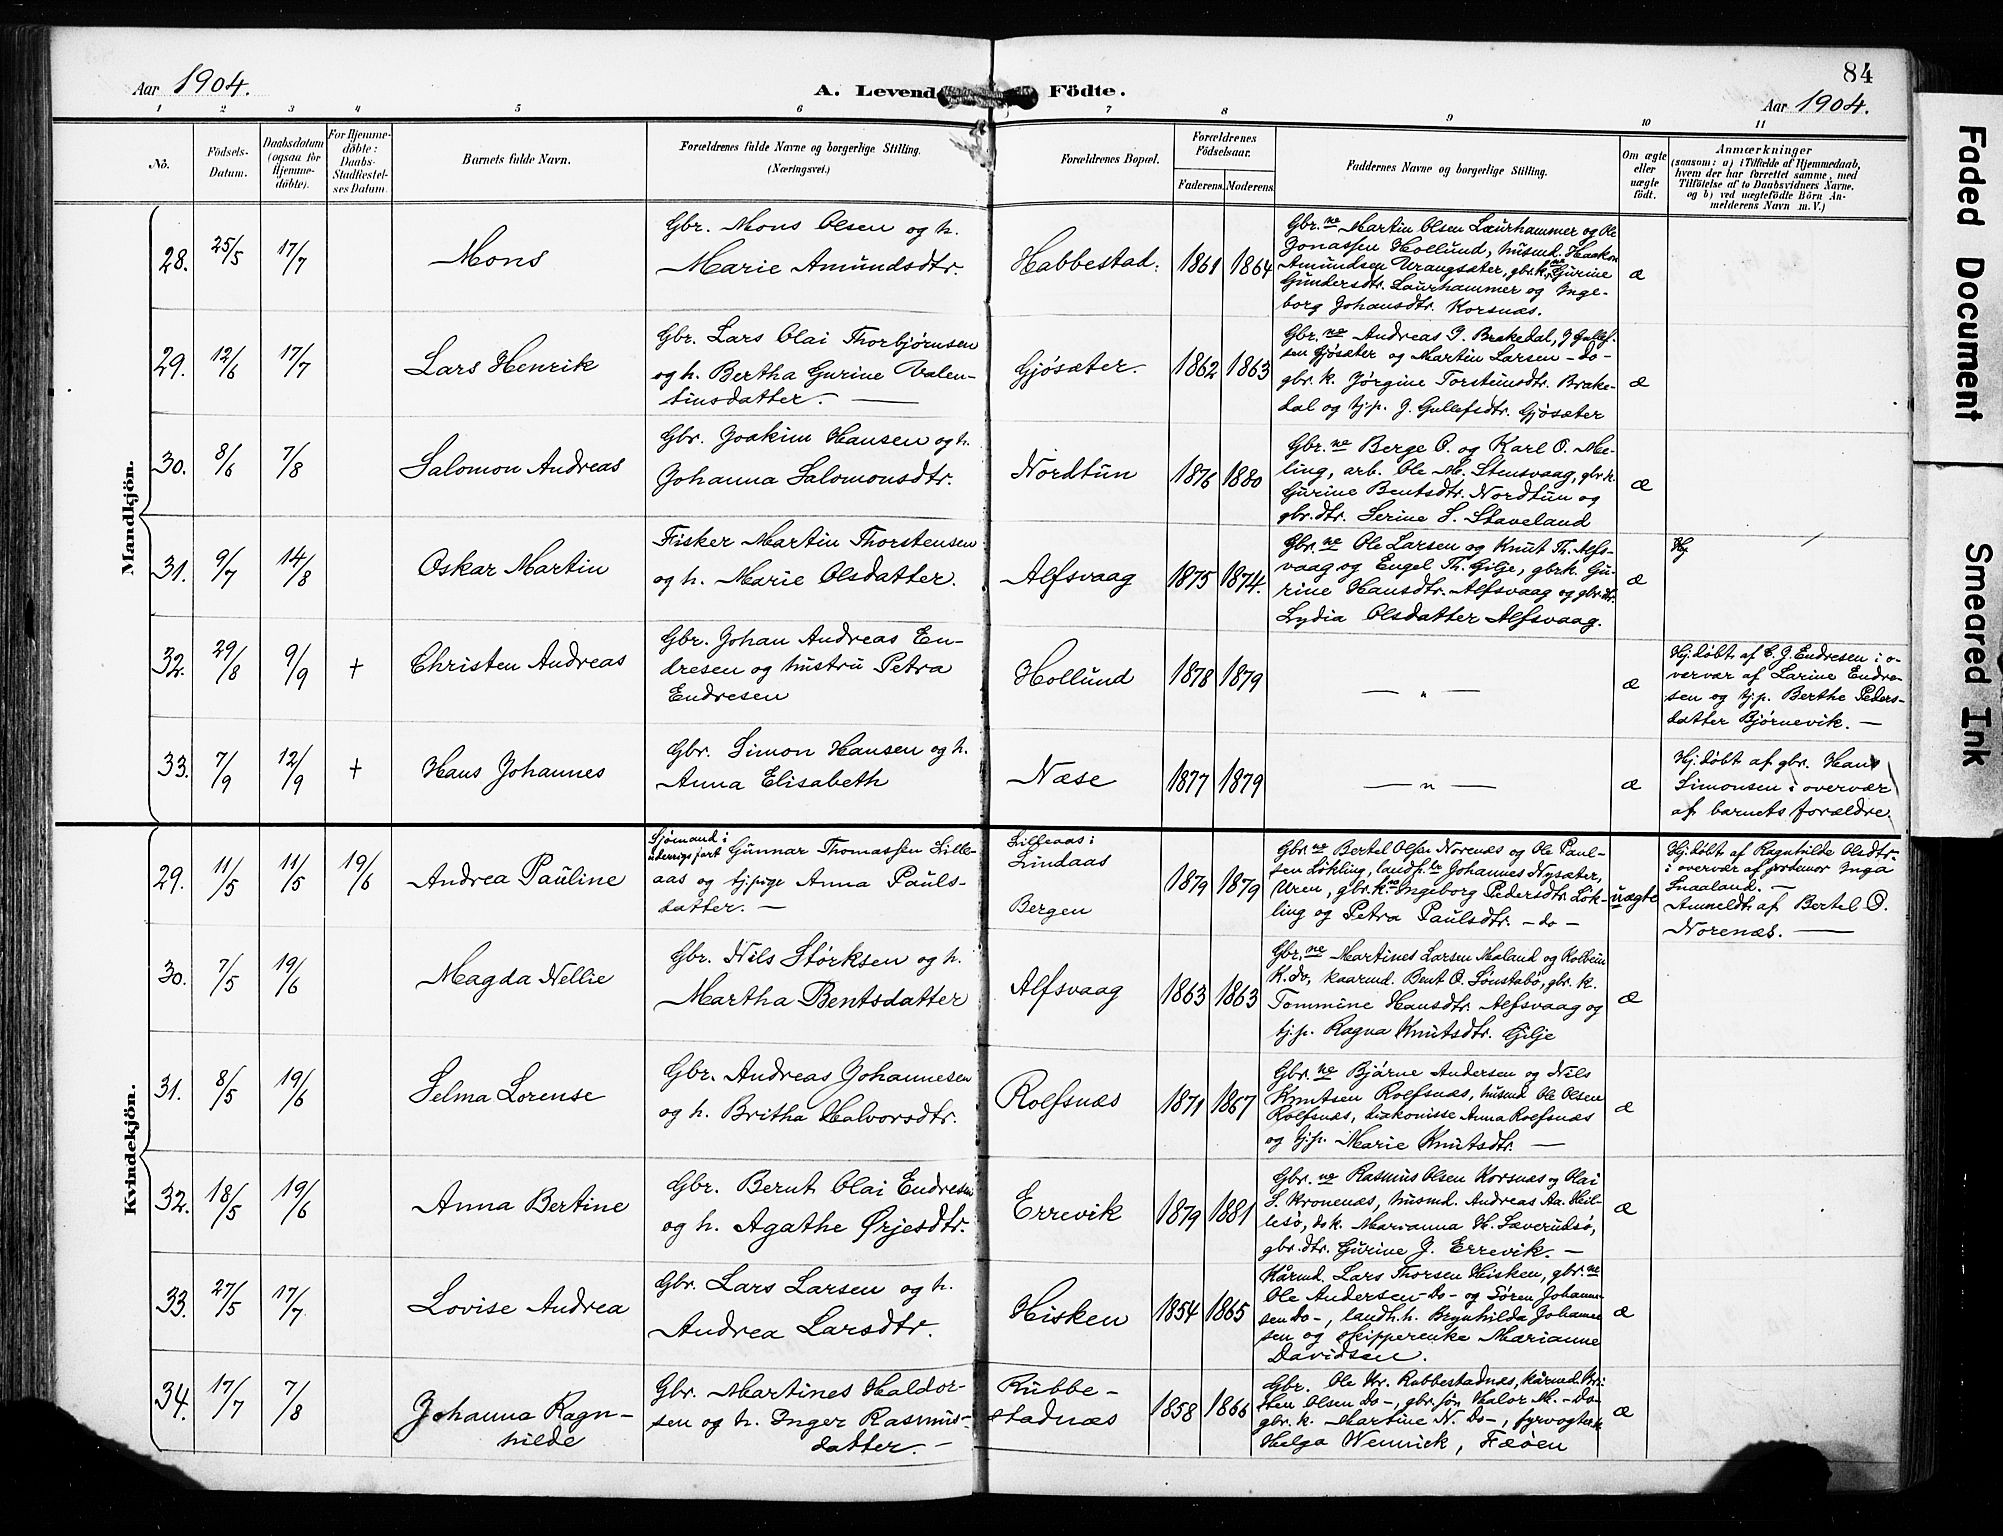 84
Aar 1904.
A. Levende Födte.
Aar 1904.
1 2 3 4 5 6 7 8 9 10 11
No.
Födsels-
Datum.
Daabsdatum
(ogsaa for
Hjemme-
døbte).
For Hjemme-
døbte:
Daabs-
Stadfæstel-
ses Datum.
Barnets fulde Navn.
Forældrenes fulde Navne og borgerlige Stilling.
(Næringsvei.)
Forældrenes Bopæl.
Forældrenes
Födselsaar.
Faderens. Moderens.
Faddernes Navne og borgerlige Stilling.
Om ægte
eller
uægte
født.
Anmærkninger
(saasom: a) i Tilfælde af Hjemmedaab,
hvem der har forrettet samme, med
Tilföielse af to Daabsvidners Navne.
og b) ved uægtefödte Börn An-
melderens Navn m. V.)
Mandkjön.
28. 25/5 17/7
Mons
Gbr. Mons Olsen og h.
Marie Amundsdtr.
Habbestad.
1861 1864
Gbr.ne Martin Olsen Laurhammer og Ole
Jonassen Hollund, husmd. Haakon
Amundsen Urangsæter, gbr.k.ne Gurine
Gundersdtr. Laurhammer og Inge-
borg Johansdtr. Korsnæs.
æ
29. 12/6 17/7
Lars Henrik
Gbr. Lars Olai Thorbjørnsen
og h. Bertha Gurine Valen-
tinsdatter. —
Gjøsæter.
1862 1863
Gbr.ne Andreas J. Brakedal, J Gullef-
sen Gjøsæter og Martin Larsen - do -
gbr. k. Jörgine Torsteinsdtr. Brake-
dal og tj.p. J. Gullefsdtr. Gjøsæter
æ
30. 8/6 7/8
Salomon Andreas
Gbr. Joakim Hansen og h.
Johanna Salomonsdtr.
Nordtun
1876 1880
Gbr.ne Berge O. og Karl O. Me-
ling, arb. Ole M. Stensvaag, gbr.k.
Gurine Bentsdtr. Nordtun og
gbr.dtr. Serine S. Staveland
æ
31. 9/7 14/8
Oskar Martin
Fisker Martin Thorstensen
og h. Marie Olsdatter.
Alfsvaag
1875 1874.
Gbr.ne Ole Larsen og Knut Th. Alfs-
vaag og Engel Th. Gilje, gbr.k. Gu-
rine Hansdtr. Alfsvaag og gbr.dtr.
Lydia Olsdatter Alfsvaag.
æ
32. 29/8 9/9 +
Christen Andreas
Gbr. Johan Andreas En-
dresen og hustru Petra
Endresen
Hollund
1878 1879
— " —
æ
Hj.døbt af C. J. Endresen i o-
vervær af Larine Endre-
sen og tj.p. Berthe Peders-
datter Bjørnevik. —
33. 7/9 12/9 +
Hans Johannes
Gbr. Simon Hansen og h.
Anna Elisabeth
Næse
1877 1879
— " —
æ
Hj.døbt af gbr. Hans
Simonsen i overvær
af barnets forældre.
Kvindekjön.
29. 11/5 11/5 19/6
Andrea Pauline
Sjømand i
udenrigsfart Gunnar Thomassen Lille-
aas og tj.pige Anna Pauls-
datter. —
Lilleaas i
Lindaas
Bergen
1879 1879
Gbr.ne Bertel Olsen Norenæs og Ole Paul-
sen Løkling, Johannes Nysæter,
Uren, gbr.k.ne Ingeborg Pedersdtr. Løk-
ling og Petra Paulsdtr. - do -
uægte
Hj.døbt af Ragnhilde Olsdtr.
i overvær af jordemor Inga
Snaaland. —
Anmeldt af Bertel O.
Norenæs. —
30. 7/5 19/6
Magda Nellie
Gbr. Nils Størksen og h.
Martha Bentsdatter
Alfsvaag
1863 1863
Gbr.ne Martines Larsen Maland og Kolbein
K. do, kaarmd. Bent O. Sønstabø, gbr. k.
Tommine Hansdtr. Alfsvaag og
tj.p. Ragna Knutsdtr. Gilje
æ
31. 8/5 19/6
Selma Lorense
Gbr. Andreas Johannesen
og h. Britha Halvorsdtr.
Rolfsnæs
1871 1867
Gbr.ne Bjarne Andersen og Nils
Knutsen Rolfsnæs, husmd Ole Olsen
Rolfsnæs, diakonisse Anna Rolfsnæs
og tj.p. Marie Knutsdtr. —
æ
32. 18/5 19/6
Anna Bertine
Gbr. Bernt Olai Endresen
og h. Agathe Ørjesdtr.
Errevik
1879 1881
Gbr.ne Rasmus Olsen Korsnæs og Olai
S. Kronenæs, husmd. Andreas Aa. Heil-
lesø, do k. Marianna H. Sæverudsø,
gbr.dtr. Gurine J. Errevik. —
æ
33. 27/5 17/7
Lovise Andrea
Gbr. Lars Larsen og h.
Andrea Larsdtr.
Hisken
1854 1865
Kårmd. Lars Thorsen Hisken, gbr.ne
Ole Andersen - Do - og Søren Johanne-
sen Do -, landh.h. Brynhilda Johanne-
sen og skipperenke Marianne
Davidsen.
æ
34. 17/7 7/8
Johanna Ragn-
hilde
Gbr. Martines Haldor-
sen og h. Inger Rasmus-
datter. —
Rubbe-
stadnæs
1858 1866
Gbr. Ole Kr. Rubbestadnæs, kårmd. Kri-
sten Olsen Do -, gbr.søn Halor M. - Do -
gbr. k. Martine N. Do -, fyrvogter k.
Helga Wennick, Fæøen
æ
Faded Document
Smeared Ink